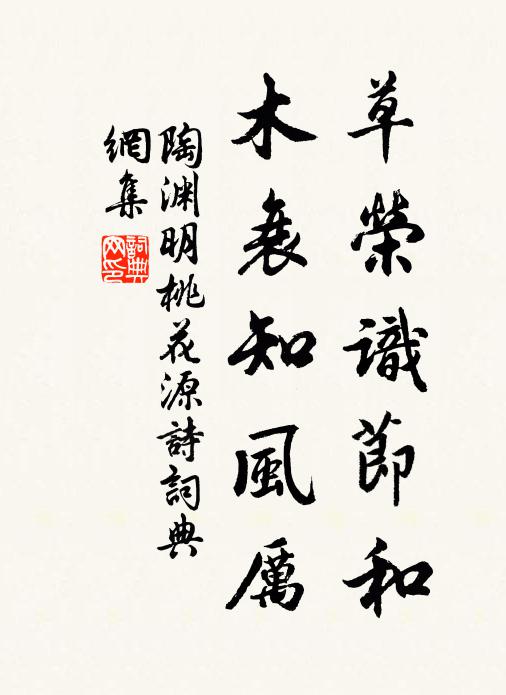 草榮識節和
木衰知風厲
陶渊明桃花源詩詞典
網集
詞典
网印